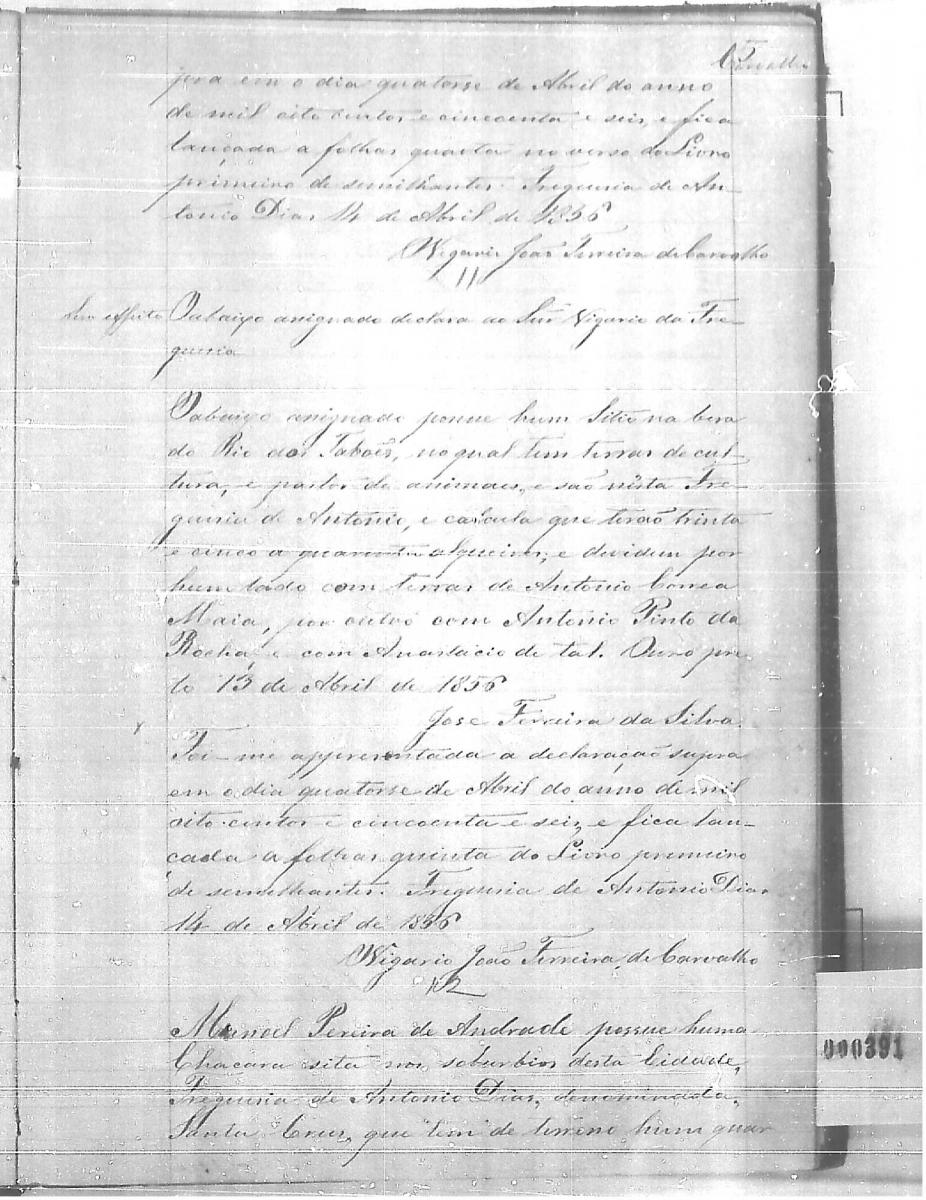 5
Carvalho
pra em o dia quatorse de Abril do anno
de mil oito centos e cincoenta e seis, e fica
lançada a folhas quarta no verso do Livro
primeiro de semilhantes. Freguesia de An-
tonio Dias 14 de Abril de 1856
Vigario João Ferreira de Carvalho
11
Sem effeito
O abaixo assignado declara ao Snr. Vigario da Fre-
guesia
O abaixo assignado possue hum Sitio na beira
do Rio dos Taboões, no qual tem terras de cul-
tura, e pastos de animaes, e são nésta Fre-
guesia de Antonio, e calcula que terão trinta
e cinco a quarenta alqueires, e devidem por
hum lado com terras de Antonio Correa
Maia, por outro com Antonio Pinto da
Rocha, e com Anastacio de tal. Ouro pre-
to 13 de Abril de 1856
Jose Ferreira da Silva
Foi-me appresentada a declaração supra
em o dia quatorse de Abril do anno de mil
oito centos e cincoenta e seis, e fica lan-
çada a folhas quinta do Livro premeiro
de semelhantes. Freguesia de Antonio Dias
14 de Abril de 1856
Vigario João Ferreira de Carvalho
12
Manoel Pereira de Andrade possue huma
Chacara sita nos soburbios desta Cidade,
Freguesia de Antonio Dias, denominada,
Santa Cruz, que tem de terreno hum quar
000391